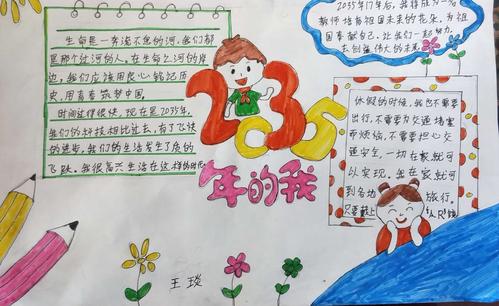 生命是一奔流不息的河,我们都
是那个过河的人,在生命之河的岸
边,我们应该用良心铭记历
史,用青春筑梦中国.
时间过得很快,现在是2035年,
我们的科技相比过去,有了飞快
的进步,我们的生活发生了质的
飞跃.我很高兴生活在这样的时代
2035
年的我
2035年17年后,我将成为一名
教师培育祖国未来的花朵,为祖
国奉献自己,让我们一起努力,
去创造伟大的未来.
休假的时候,我也不需要
出行,不需要为交通堵塞
而烦恼,不需要担心交通
安全,一切在家就可
以实现.我在家就可
到各地 旅行.
只要戴上
王琰